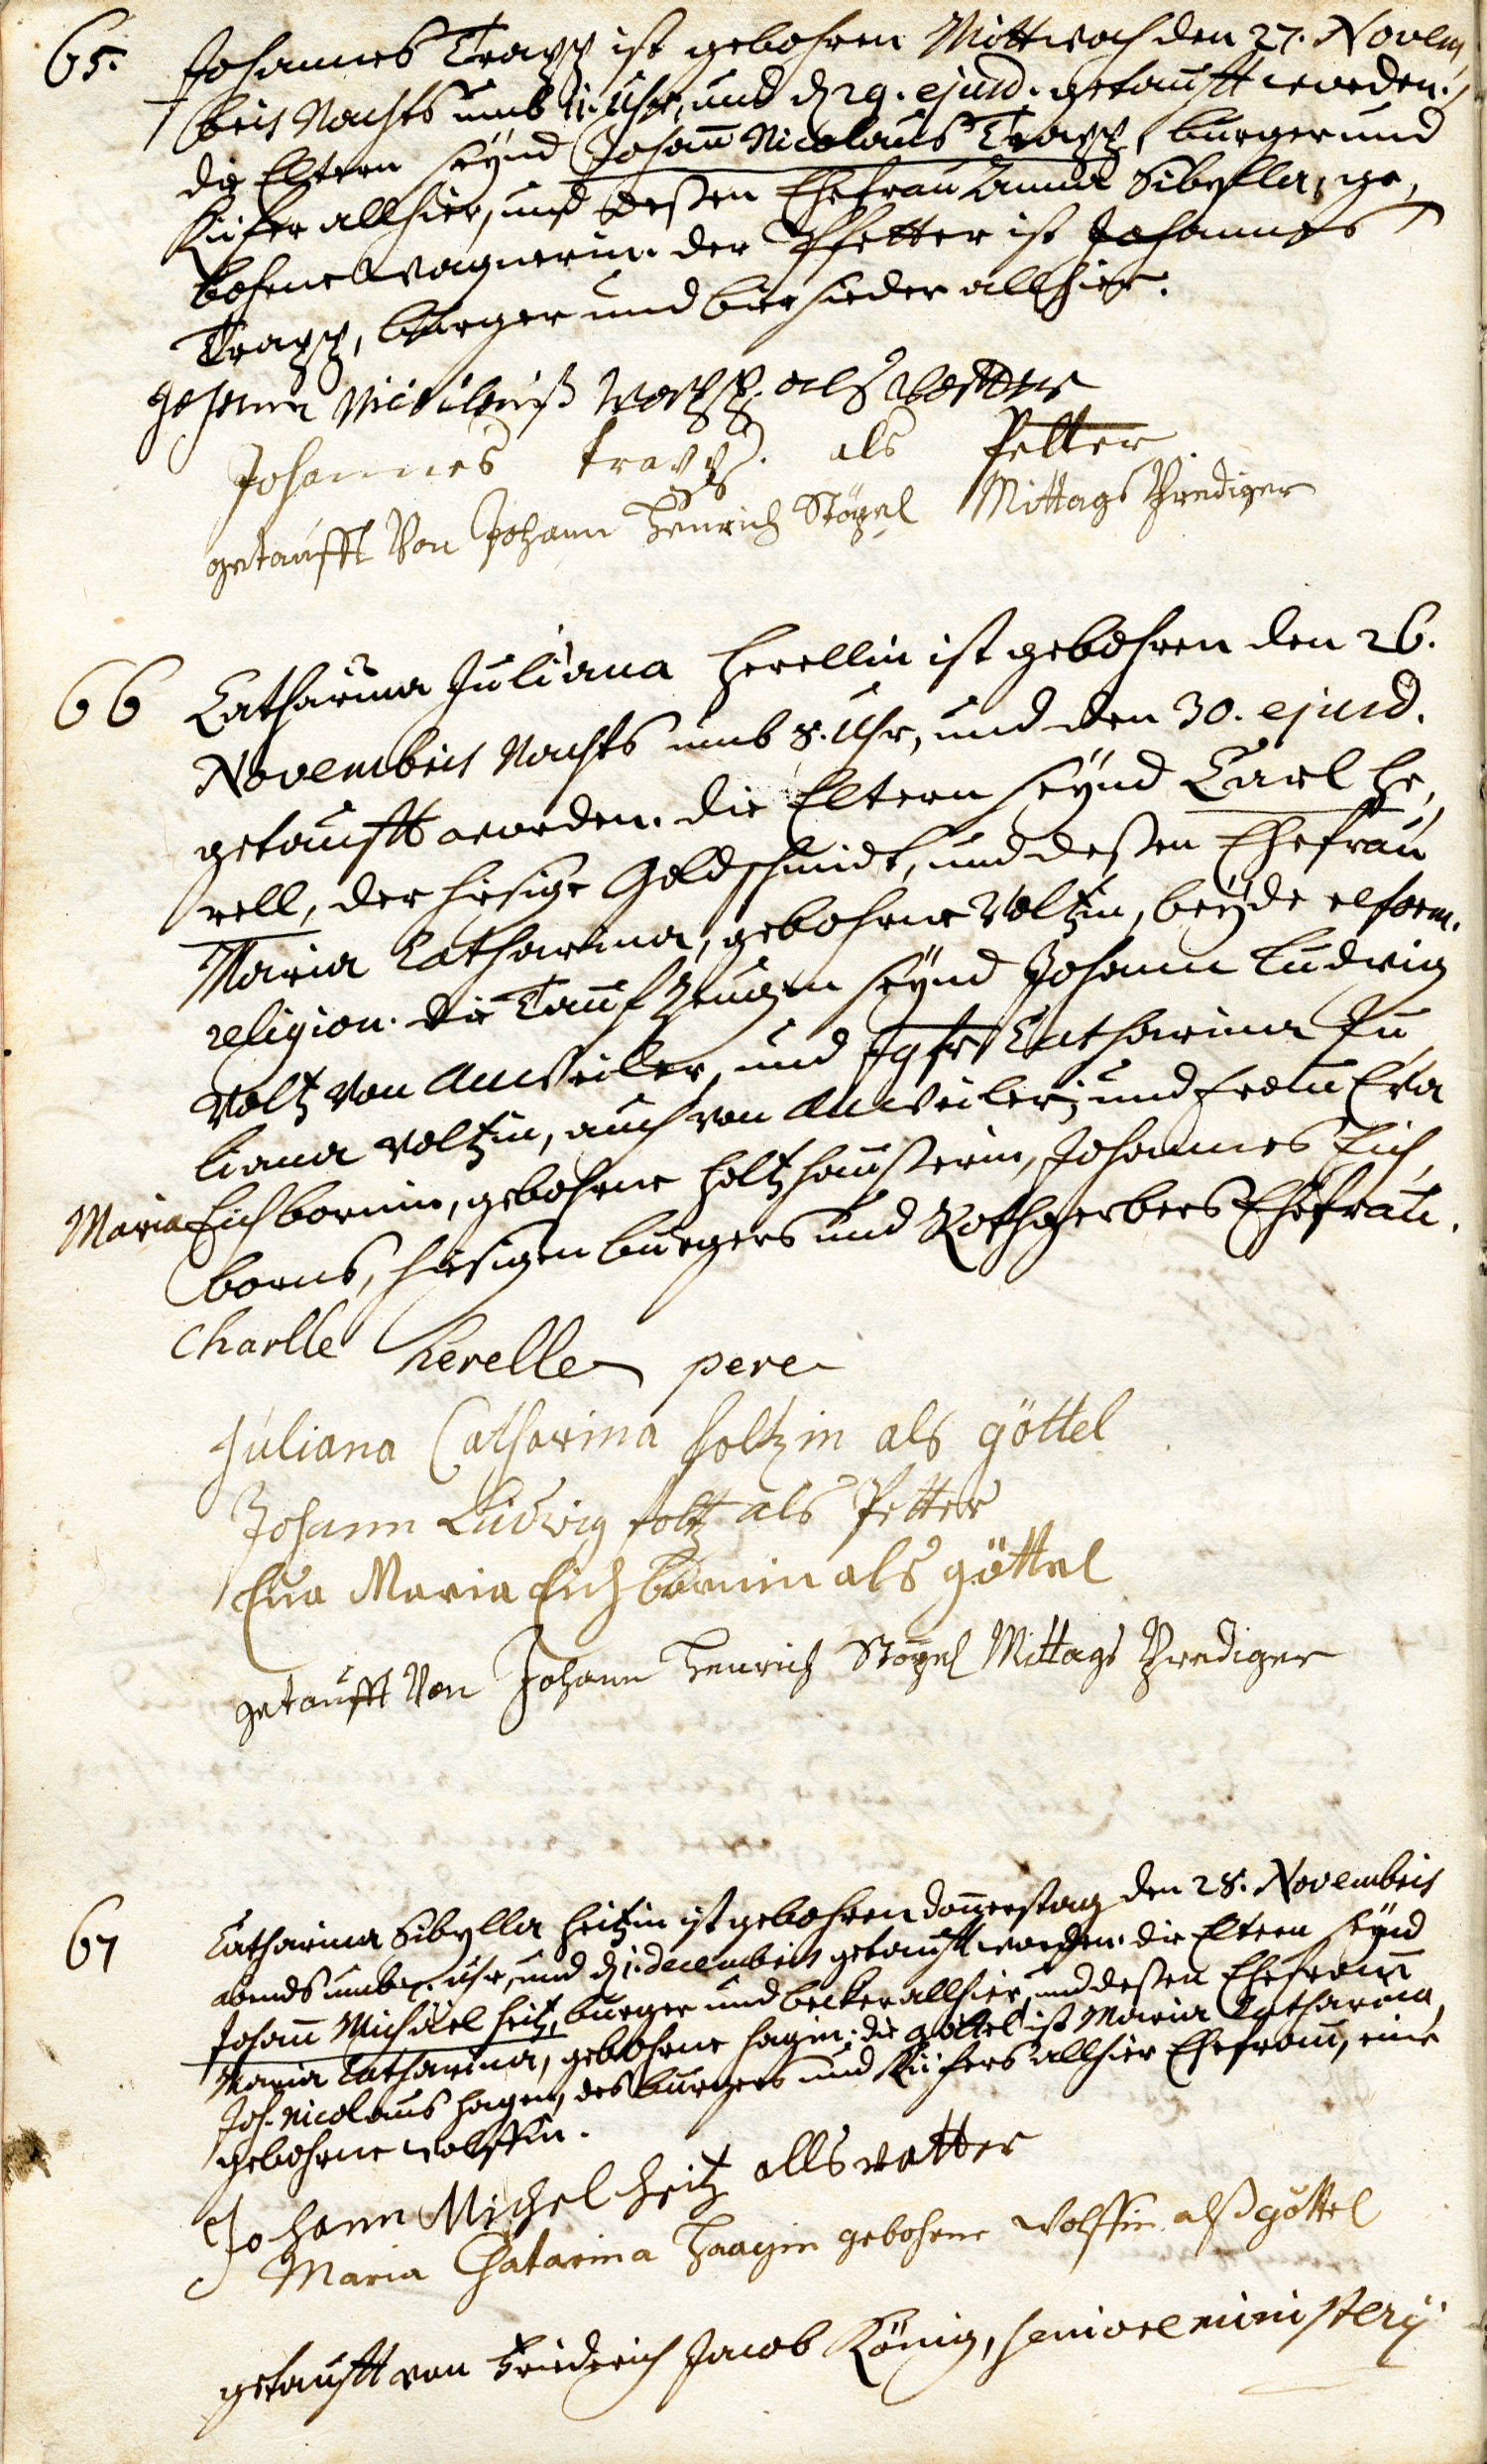 65. Johannes Trapp ist gebohren Mittwoch den 27. Novem,
bris Nachts umb 11. Uhr, und d. 29. ejusd. getaufft worden.
die Eltern seynd Johañ Nicolaus Trapp, burger und
Kiefer allhier, und deßen Ehefrau Anna Sibylla, ge,
bohrne Wagnerin. der Pfetter ist Johannes
Trapp, burger und biersieder allhier.
Johannes trapp. als Petter
getaufft Von Johann Henrich Stögel Mittags Prediger
66 Catharina Juliana Herellin ist gebohren den 26.
Novembris Nachts umb 8. Uhr, und den 30. ejusd.
getaufft worden. die Eltern seynd Carl He,
rell, der hiesige Goldschmidt, und deßen Ehefrau
Maria Catharina, gebohrne Voltzin, beyde reform.
religion. die Tauff Zeugen seynd Johann Ludwig
Voltz von Anweiler, und Jgfr Catharina Ju,
liana Voltzin, auch von Anweiler; und Frau Eva
Maria Eichbornin, gebohrne Holtzhaußerin, Johannes Eich,
borns, hiesigen burgers und Rothgerbers Ehefrau.
Charlle herelle pere
Juliana Catharina foltzin als göttel
Johann Ludwig foltz als Petter
Eva Maria Eichbornin als göttel
getaufft Von Johann Henrich Stögel Mittags Prediger
67 Catharina Sibylla Heitzin ist gebohren donnerstag den 28. Novembris
abends umb Uhr, und d. 1. decembris getaufft worden. die Eltern seynd
Johañ Michäel Heitz, burger und becker allhier, und deßen Ehefrau
Maria Catharina, gebohrne Hagin; die göttel ist Maria Catharina,
Joh. Nicolaus Hagen, des burgers und Kiefers allhier Ehefrau, eine
gebohrne Wolffin.
Johann Michel Heitz alls vatter
Maria Chatarina Haagin gebohrne Wolffin alß göttel
getaufft von Friederich Jacob König, seniore ministerij